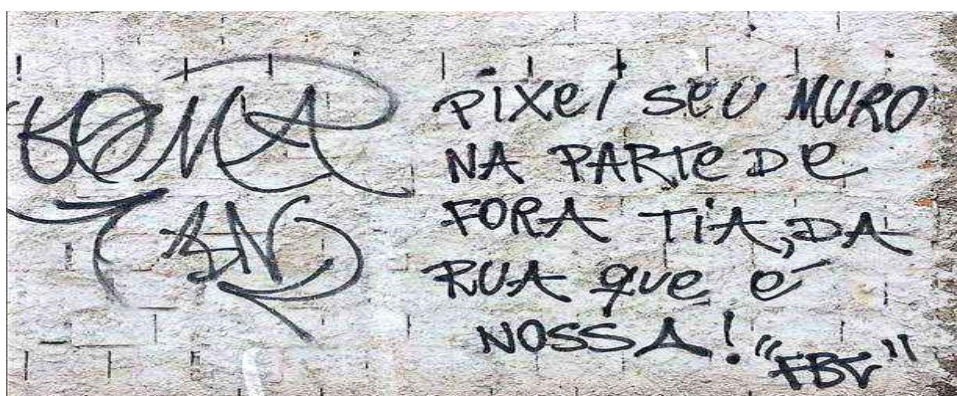 PIXEI SEU MURO
NA PARTE DE
FORA TIA, DA
RUA que é
NOSSA! "FBT"